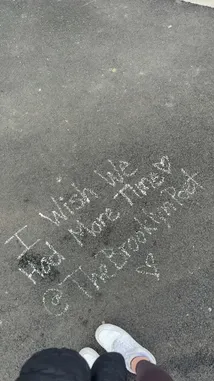 I Wish We
Had More Time ♡
@TheBrooklynPoet
♡